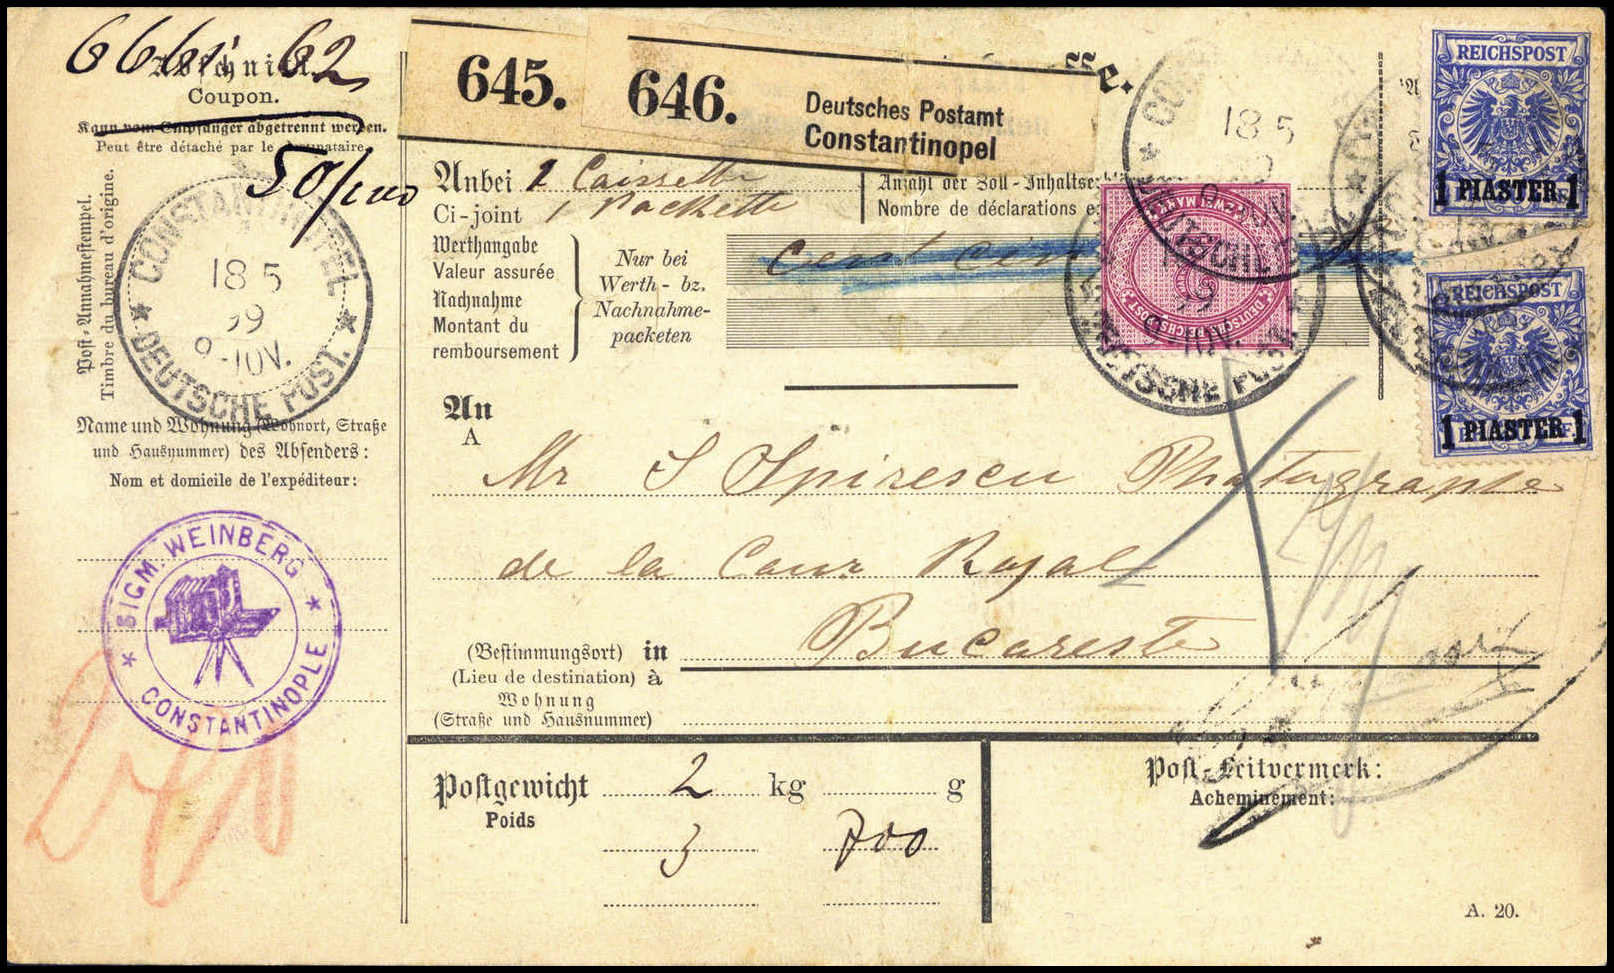 Abschnitt.
Coupon.
Kann vom Empfänger abgetrennt werden.
Peut être détaché par le destinataire.
50/100
Post-Annahmestempel.
Timbre du bureau d'origine.
CONSTANTINOPEL
18 5
99
9-10V.
* DEUTSCHE POST. *
Name und Wohnung (Wohnort, Straße
und Hausnummer) des Absenders:
Nom et domicile de l'expéditeur:
SIGM. WEINBERG
* CONSTANTINOPLE *
645.
646.
Deutsches Postamt
Constantinopel
Anbei 1 Caissette
Ci-joint 1 Packette
Anzahl der Zoll-Inhaltserkl
Nombre de déclarations e
Werthangabe
Valeur assurée
Nachnahme
Montant du
remboursement
Nur bei
Werth- bz.
Nachnahme-
packeten
cent
18 5
DEUTSCHE POST
REICHSPOST
1 PIASTER 1
REICHSPOST
1 PIASTER 1
An
A
Mr S Spirescu Photographe
de la Cour Royal
(Bestimmungsort) in Bucareste
(Lieu de destination) à
Wohnung
(Straße und Hausnummer)
Postgewicht 2 kg g
Poids
3 700
Post-Leitvermerk:
Acheminement:
A. 20.